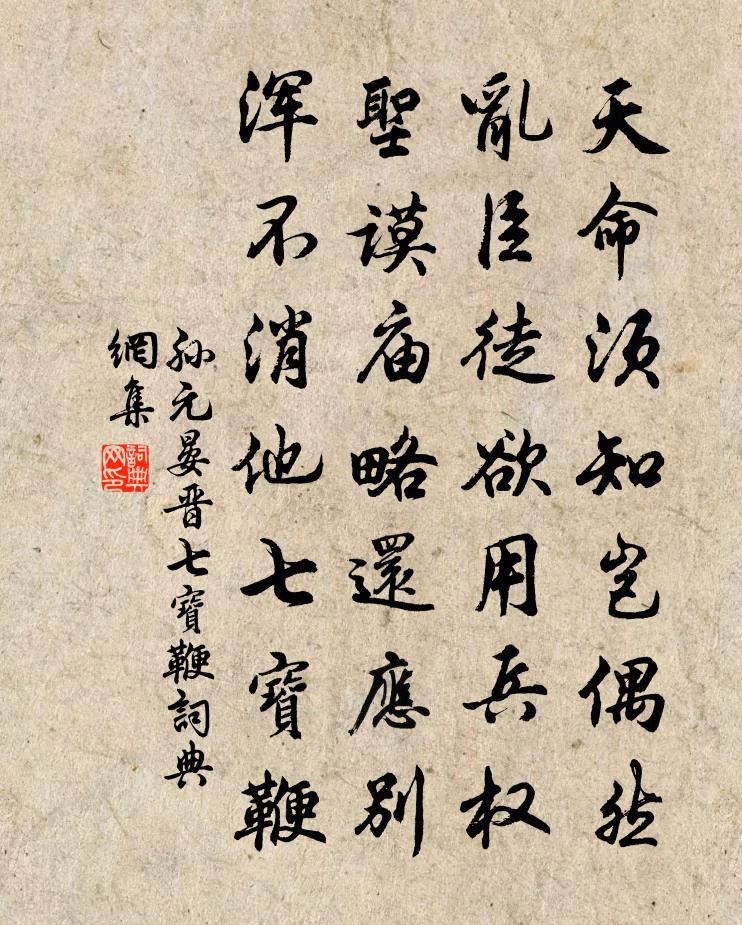 天命須知豈偶然
亂臣徒欲用兵权
聖謨庙略還應別
浑不消他七寶鞭
孙元晏晋七寶鞭詞典
網集
詞典网印